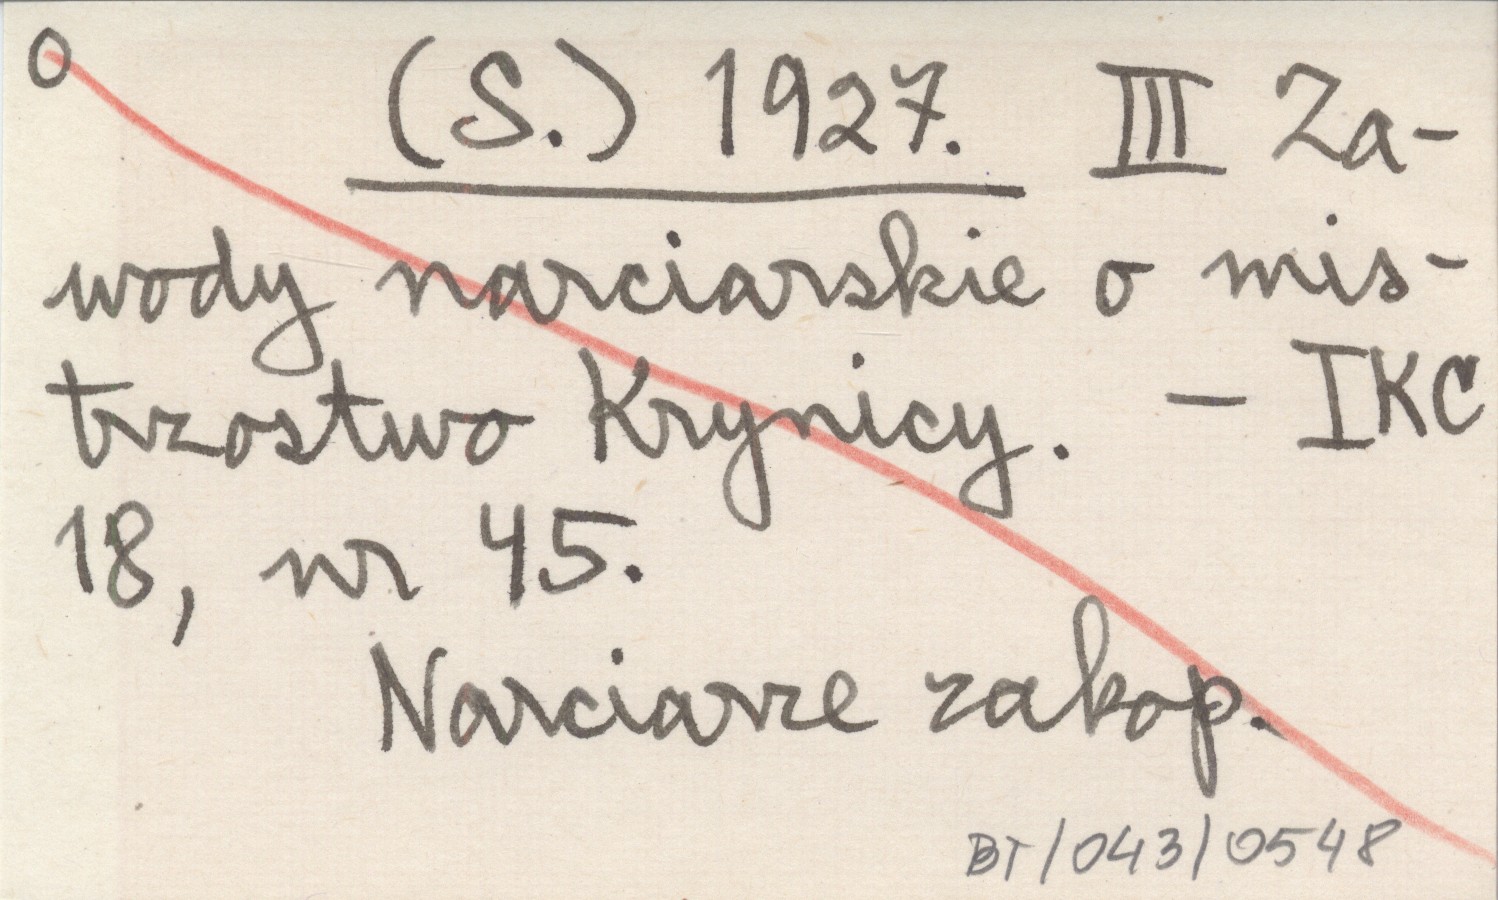 O (S.) 1927. III Za-
wody narciarskie o mis-
trzostwo Krynicy. — IKC
18, nr 45.
Narciarze zakop.
BT/043/0548